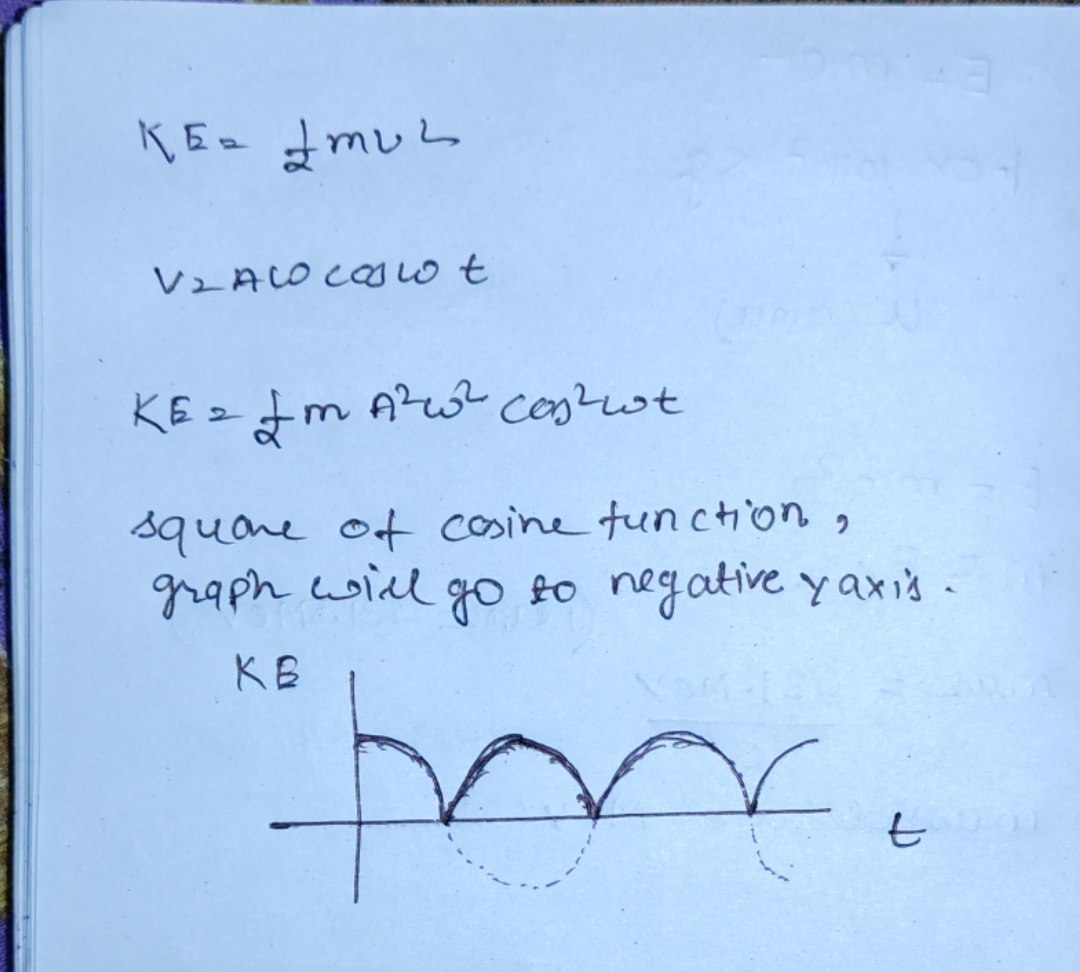 KE = 1/2 mv2
V = Aω cos ω t
KE = 1/2 m A²ω² cos²ωt
square of cosine function,
graph will go to negative y axis.
KE
t